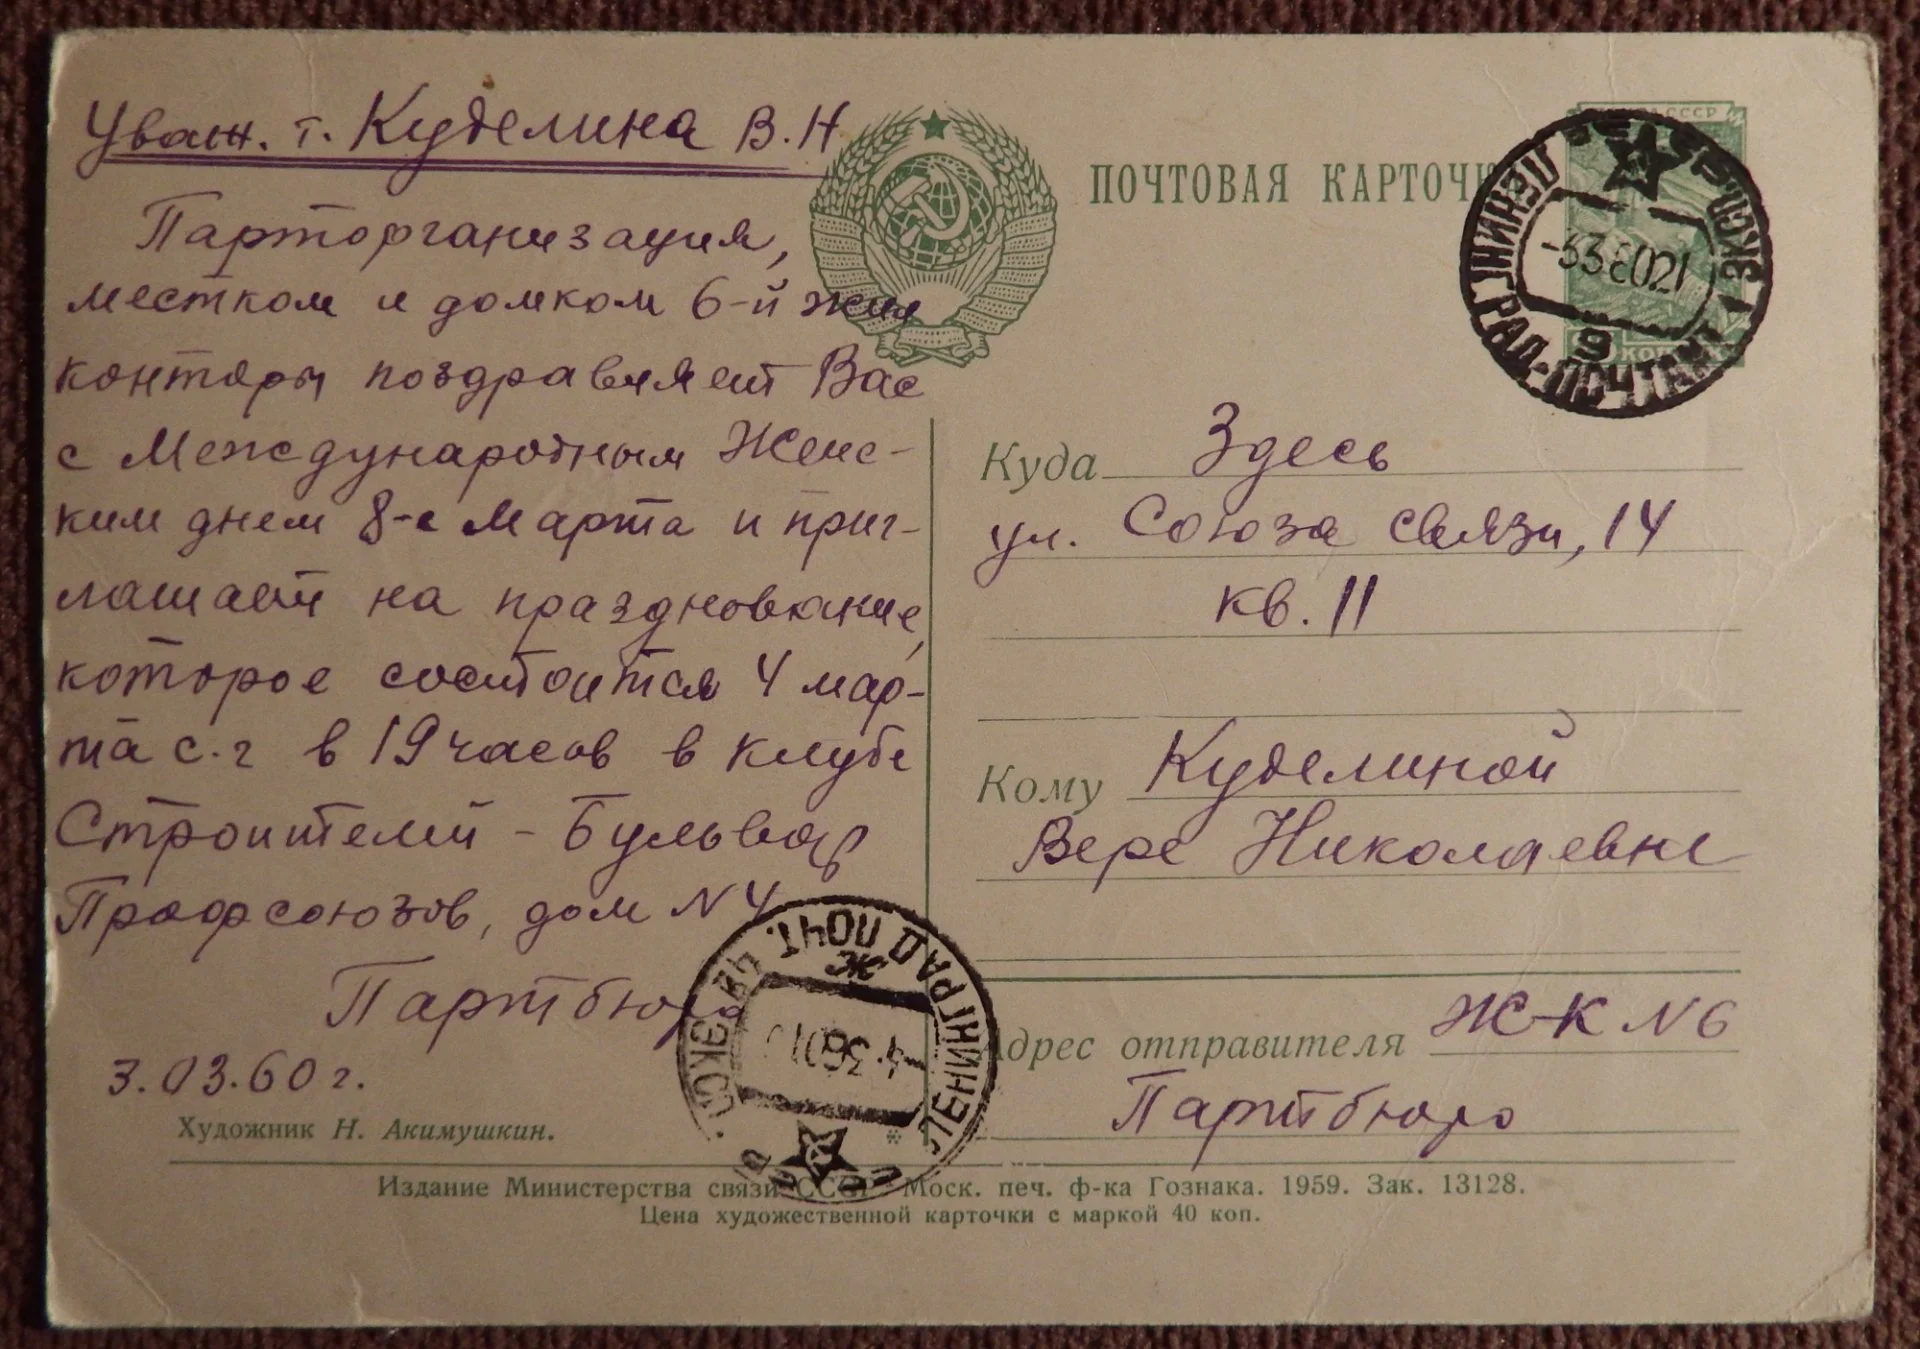 Уваж. т. Куделина В.Н
Парторганизация,
местком и домком 6-й жил
конторы поздравляет Вас
с Международным Женс-
ким днем 8-е Марта и приг-
лашает на празднование,
которое состоится 4 мар-
та с.г в 19 часов в клубе
Строителей - Бульвар
Профсоюзов, дом N 4
Партбюро
3.03.60 г.
Художник Н. Акимушкин.
ПОЧТОВАЯ КАРТОЧК
СССР
ЛЕНИНГРАД-ПОЧТАМТ
-336021
9
ЭКСП.
КОП
Куда Здесь
ул. Союза связи, 14
кв. 11
Кому Куделиной
Вере Николаевне
Адрес отправителя Ж-К N 6
Партбюро
ЛЕНИНГРАД ПОЧТ.
Ж
ЭКСП.
*
Издание Министерства связи СССР. Моск. печ. ф-ка Гознака. 1959. Зак. 13128.
Цена художественной карточки с маркой 40 коп.